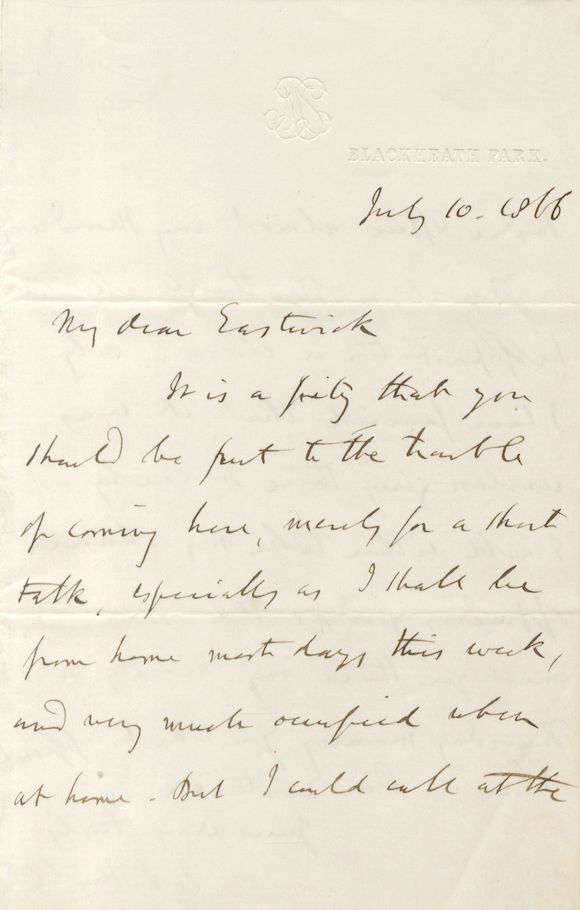 BLACKHEATH PARK.
July 10. 1866
My dear Eastwick
It is a pity that you
should be put to the trouble
of coming here, merely for a short
talk, especially as I shall be
from home most days this week,
and very much occupied when
at home. But I could call at the